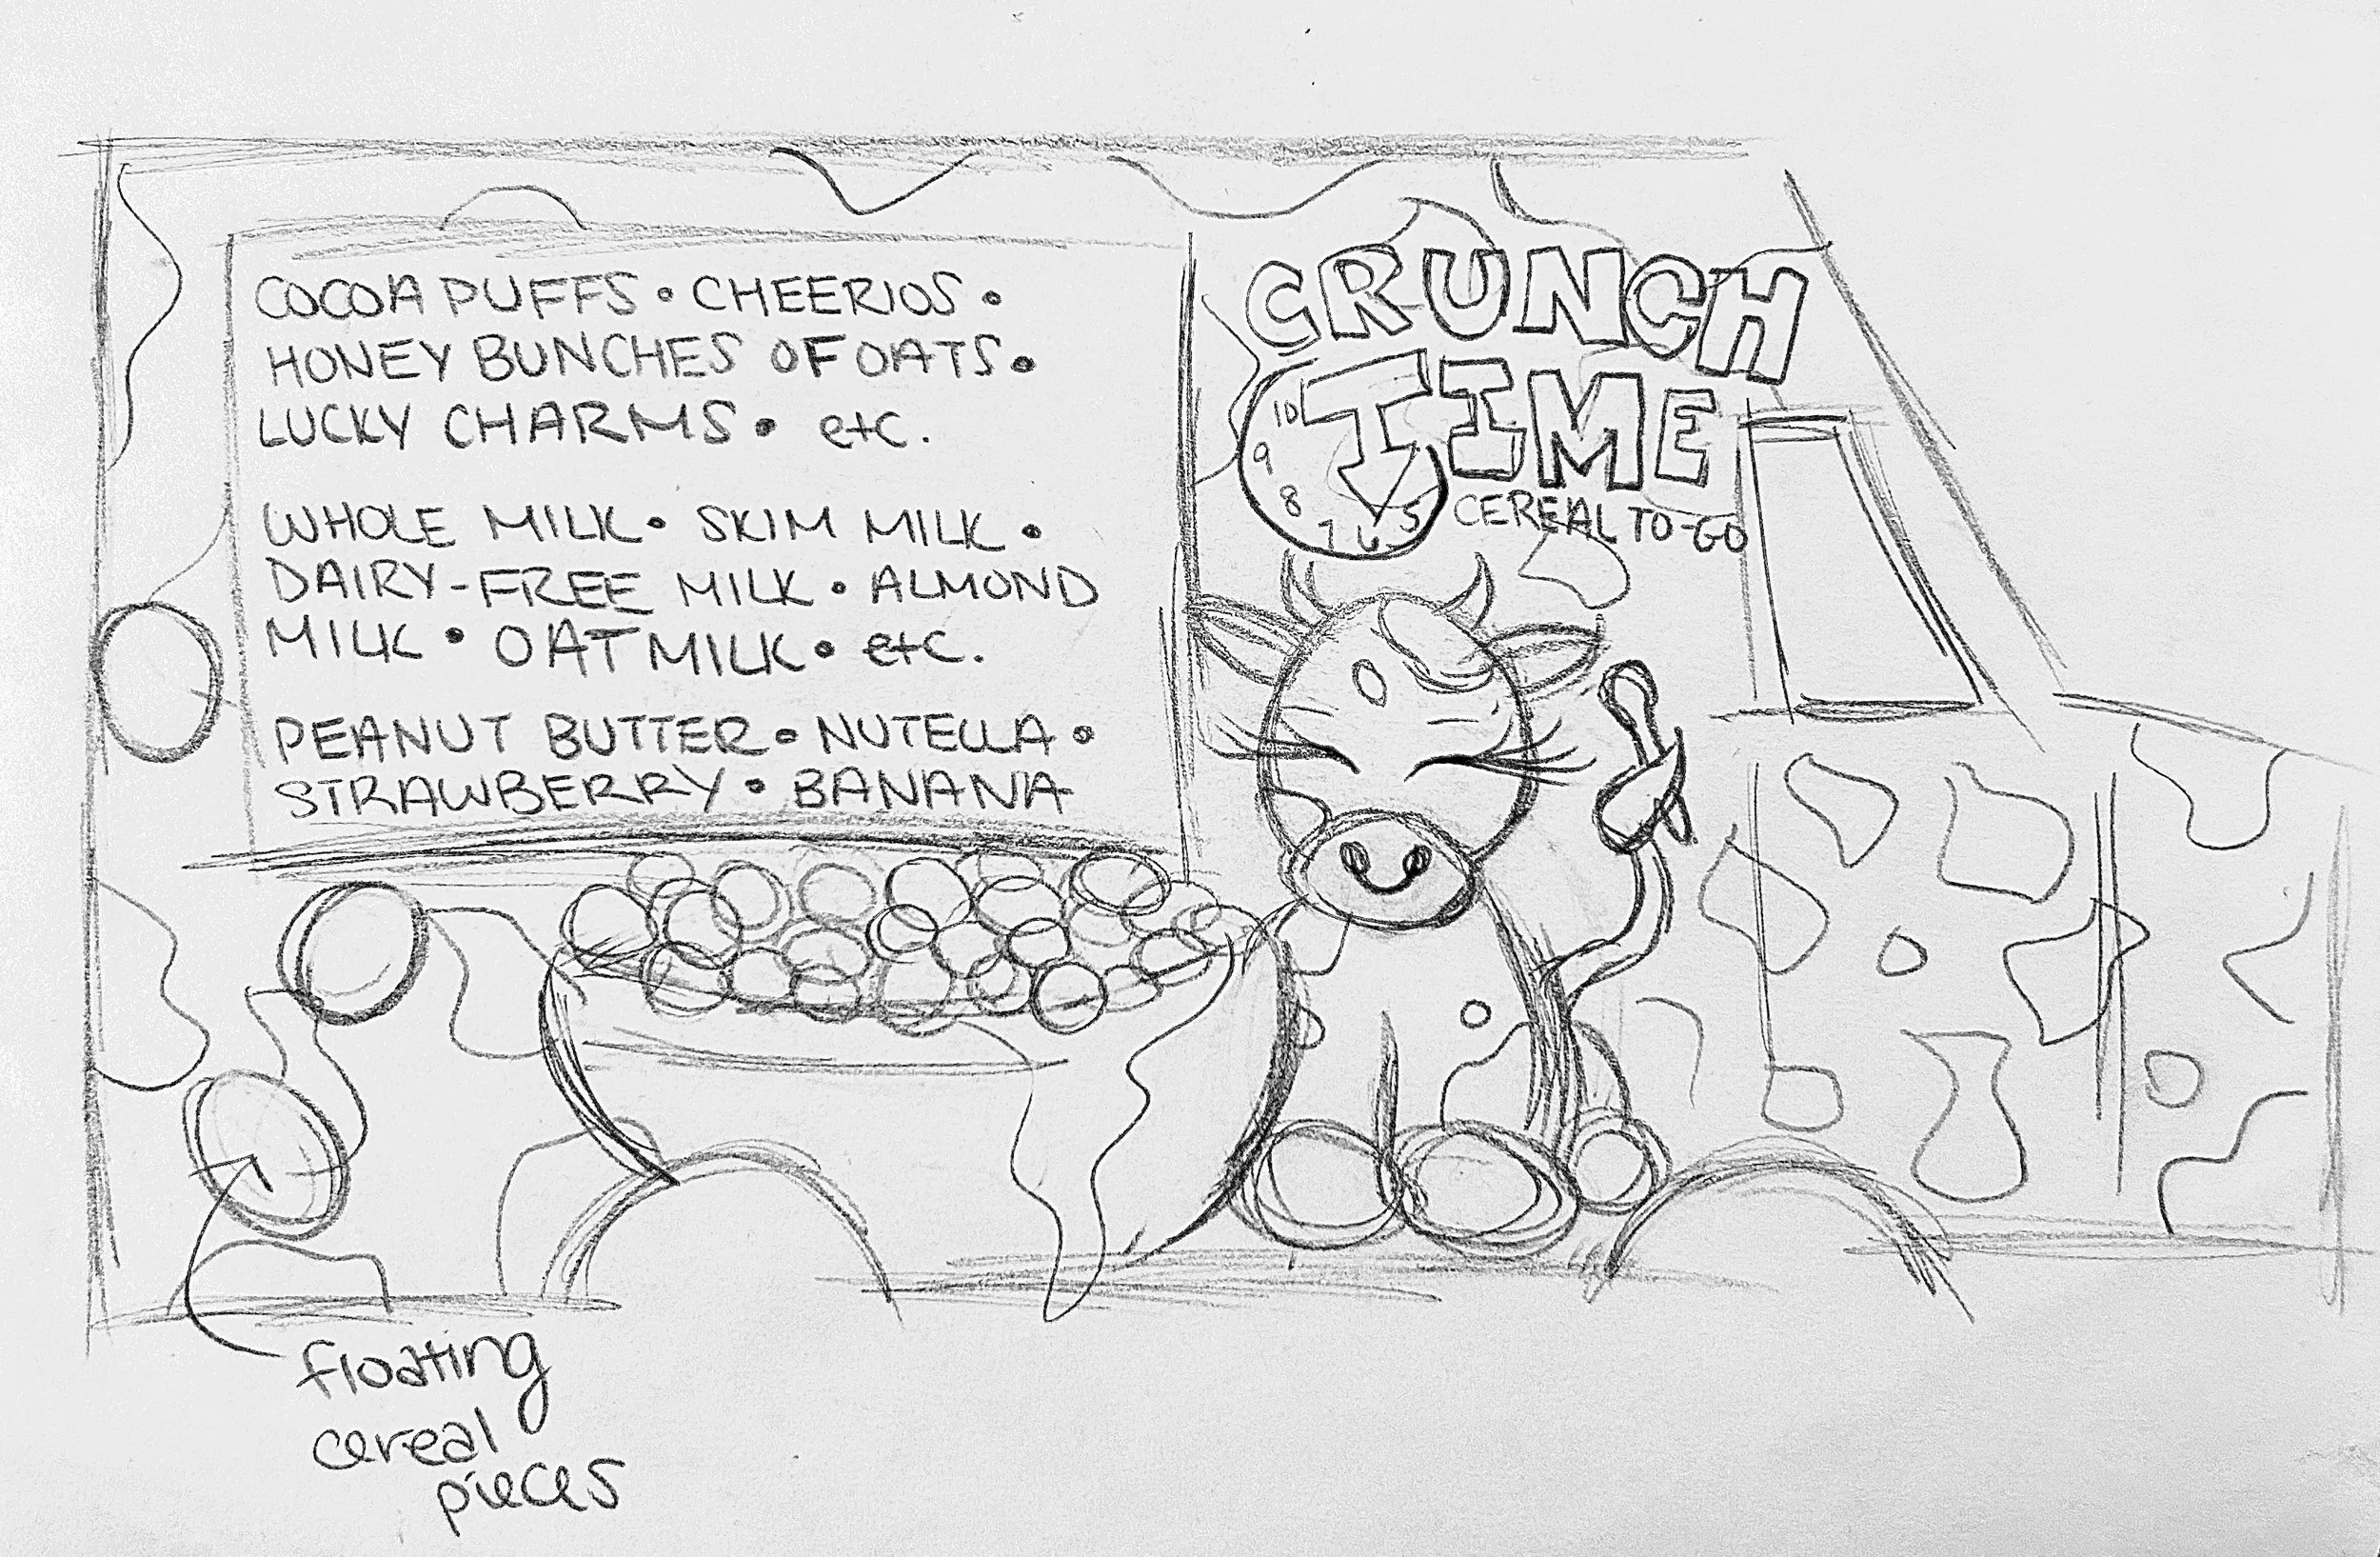 COCOA PUFFS • CHEERIOS •
HONEY BUNCHES OF OATS •
LUCKY CHARMS • etc.
WHOLE MILK • SKIM MILK •
DAIRY-FREE MILK • ALMOND
MILK • OAT MILK • etc.
PEANUT BUTTER • NUTELLA •
STRAWBERRY • BANANA
CRUNCH
TIME
10
9
8
7 6 5
CEREAL TO-GO
floating
cereal
pieces